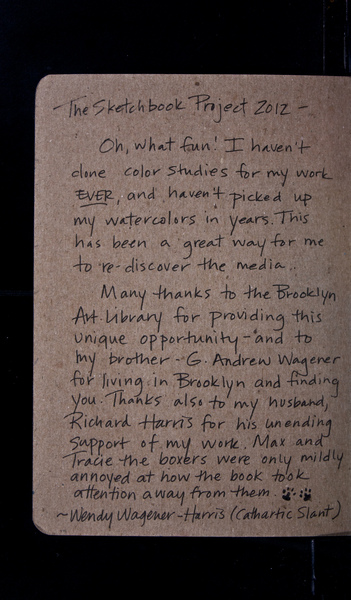 - The Sketchbook Project 2012 -
Oh, what fun! I haven't
done color studies for my work
EVER, and haven't picked up
my watercolors in years. This
has been a great way for me
to re-discover the media..
Many thanks to the Brooklyn
Art Library for providing this
unique opportunity - and to
my brother - G. Andrew Wagener
for living in Brooklyn and finding
you. Thanks also to my husband,
Richard Harris for his unending
support of my work. Max and
Tracie the boxers were only mildly
annoyed at how the book took
attention away from them.
~Wendy Wagener-Harris (Cathartic Slant)